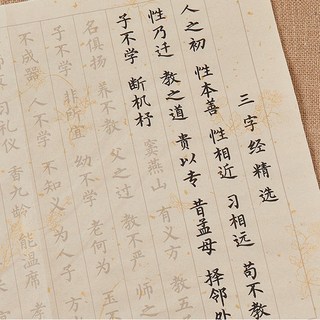 三字经精选
人之初 性本善 性相近 习相远 苟不教
性乃迁 教之道 贵以专 昔孟母 择邻处
子不学 断机杼 窦燕山 有义方 教五
名俱扬 养不教 父之过 教不严 师之
子不学 非所宜 幼不学 老何为 玉不
不成器 人不学 不知义 为人子 方
习礼仪 香九龄 能温席